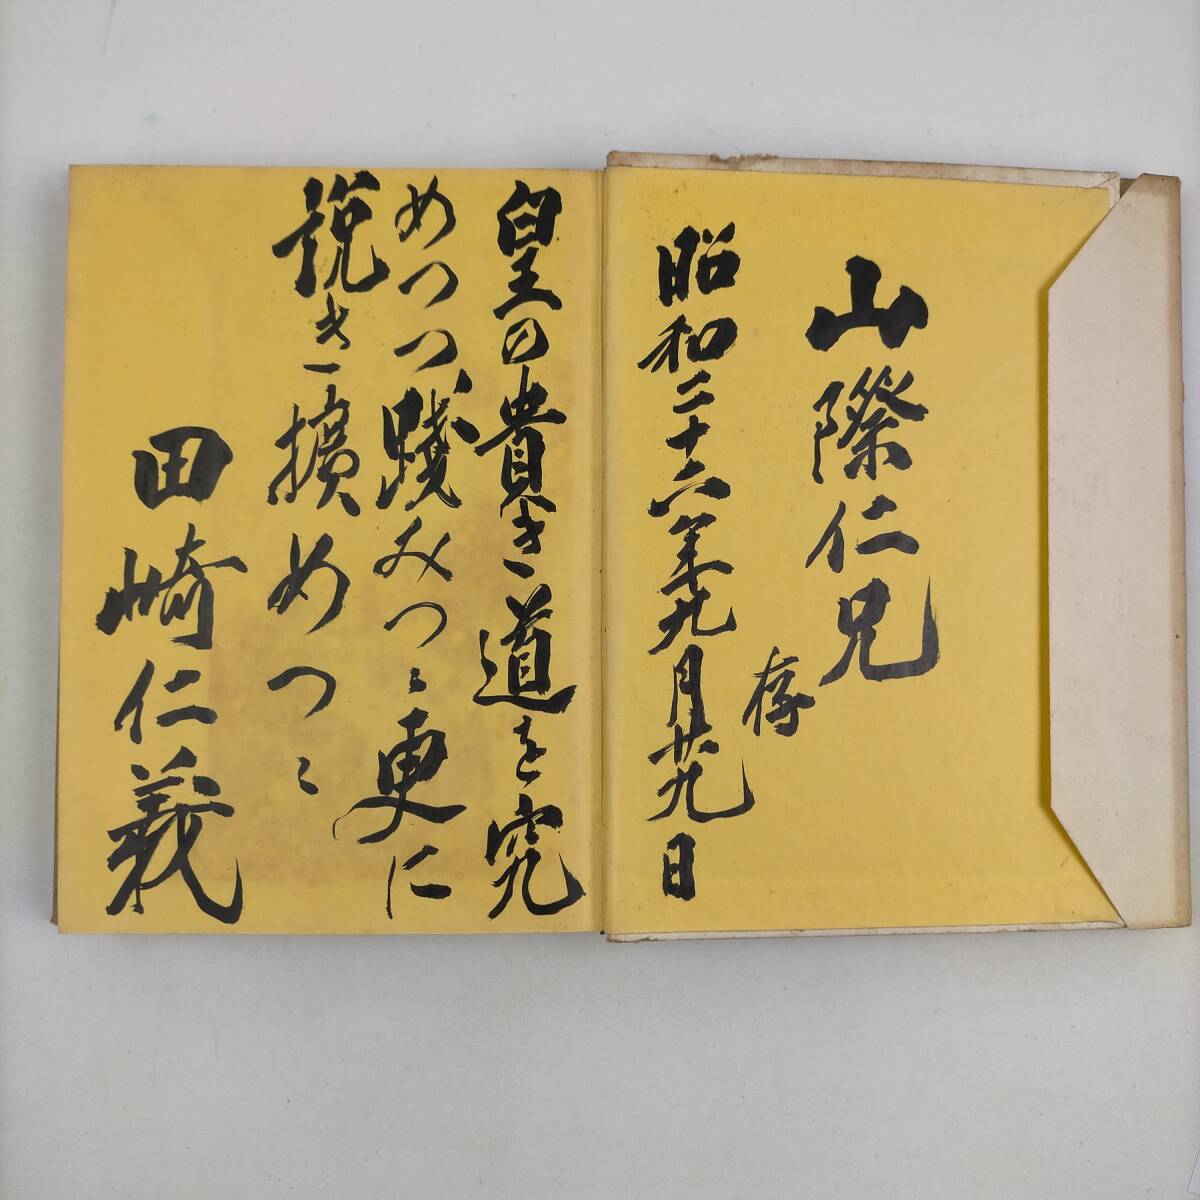 山際仁兄
存
昭和二十六年九月廿九日
皇の貴き道を究
めつつ踐みつゝ更に
説き擴めつゝ
田崎仁義